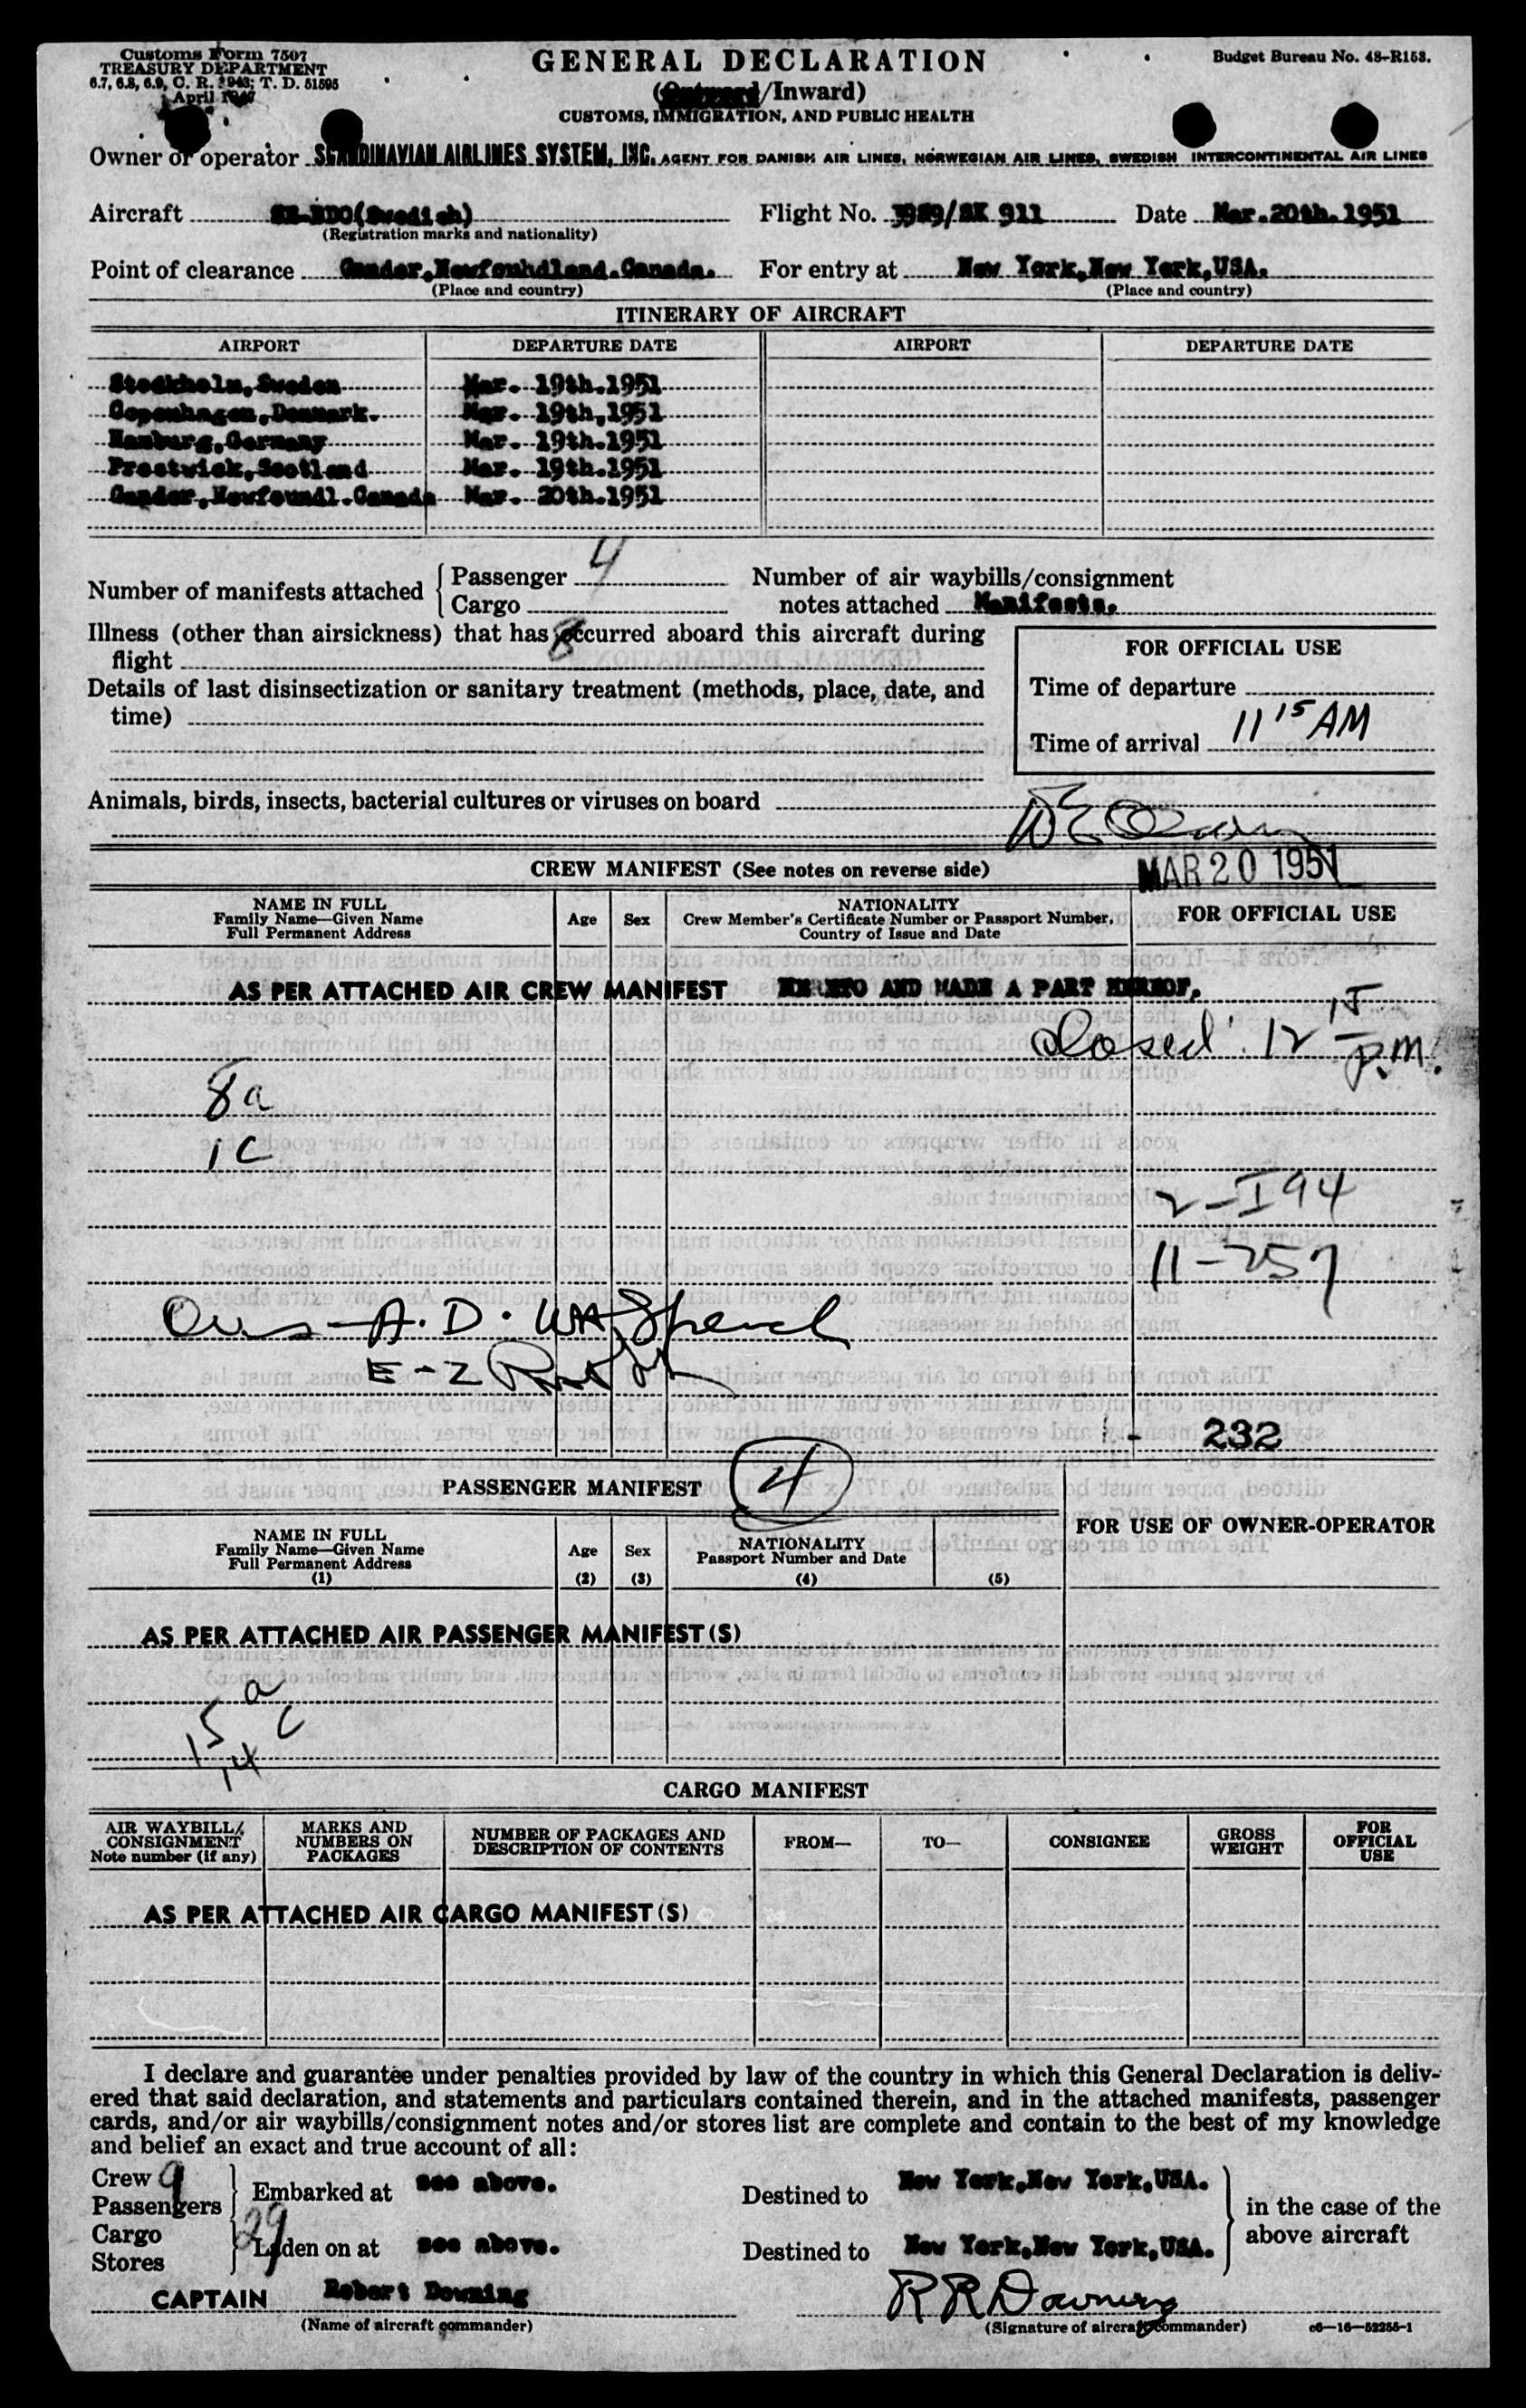 Customs Form 7507
TREASURY DEPARTMENT
6.7, 6.8, 6.9, C. R. 1943; T. D. 51595
April
GENERAL DECLARATION
(Outward/Inward)
CUSTOMS, IMMIGRATION, AND PUBLIC HEALTH
Budget Bureau No. 48-R153.
Owner or operator SCANDINAVIAN AIRLINES SYSTEM, INC. AGENT FOR DANISH AIR LINES, NORWEGIAN AIR LINES, SWEDISH INTERCONTINENTAL AIR LINES
Aircraft SE-BDO(Swedish) Flight No. 3989/SK 911 Date Mar.20th.1951
(Registration marks and nationality)
Point of clearance Gander,Newfouhdland.Canada. For entry at New York,New York,USA.
(Place and country) (Place and country)
ITINERARY OF AIRCRAFT
AIRPORT DEPARTURE DATE AIRPORT DEPARTURE DATE
Stockholm,Sweden Mar. 19th.1951
Copenhagen,Denmark. Mar. 19th,1951
Hamburg,Germany Mar. 19th.1951
Prestwick,Scotland Mar. 19th.1951
Gander,Newfoundl.Canada Mar. 20th.1951
Number of manifests attached Passenger 4 Number of air waybills/consignment
Cargo notes attached Manifests.
Illness (other than airsickness) that has occurred aboard this aircraft during
flight
Details of last disinsectization or sanitary treatment (methods, place, date, and
time)
FOR OFFICIAL USE
Time of departure
Time of arrival 11 15 AM
Animals, birds, insects, bacterial cultures or viruses on board
CREW MANIFEST (See notes on reverse side) MAR 20 1951
NAME IN FULL
Family Name—Given Name
Full Permanent Address
Age Sex
NATIONALITY
Crew Member's Certificate Number or Passport Number,
Country of Issue and Date
FOR OFFICIAL USE
AS PER ATTACHED AIR CREW MANIFEST HERETO AND MADE A PART HEREOF.
Closed 12 15 P.M.
8a
1c
2-I94
11-257
A. D.
E-2
1 - 232
PASSENGER MANIFEST 4
NAME IN FULL
Family Name—Given Name
Full Permanent Address
(1)
Age
(2)
Sex
(3)
NATIONALITY
Passport Number and Date
(4) (5)
FOR USE OF OWNER-OPERATOR
AS PER ATTACHED AIR PASSENGER MANIFEST(S)
15 a
14 c
CARGO MANIFEST
AIR WAYBILL/
CONSIGNMENT
Note number (if any)
MARKS AND
NUMBERS ON
PACKAGES
NUMBER OF PACKAGES AND
DESCRIPTION OF CONTENTS
FROM— TO— CONSIGNEE
GROSS
WEIGHT
FOR
OFFICIAL
USE
AS PER ATTACHED AIR CARGO MANIFEST(S)
I declare and guarantee under penalties provided by law of the country in which this General Declaration is deliv-
ered that said declaration, and statements and particulars contained therein, and in the attached manifests, passenger
cards, and/or air waybills/consignment notes and/or stores list are complete and contain to the best of my knowledge
and belief an exact and true account of all:
Crew 9
Passengers 29 Embarked at see above. Destined to New York,New York,USA. in the case of the
Cargo above aircraft
Stores Laden on at see above. Destined to New York,New York,USA.
CAPTAIN Robert Downing R R Downing
(Name of aircraft commander) (Signature of aircraft commander) c6—16—52255-1